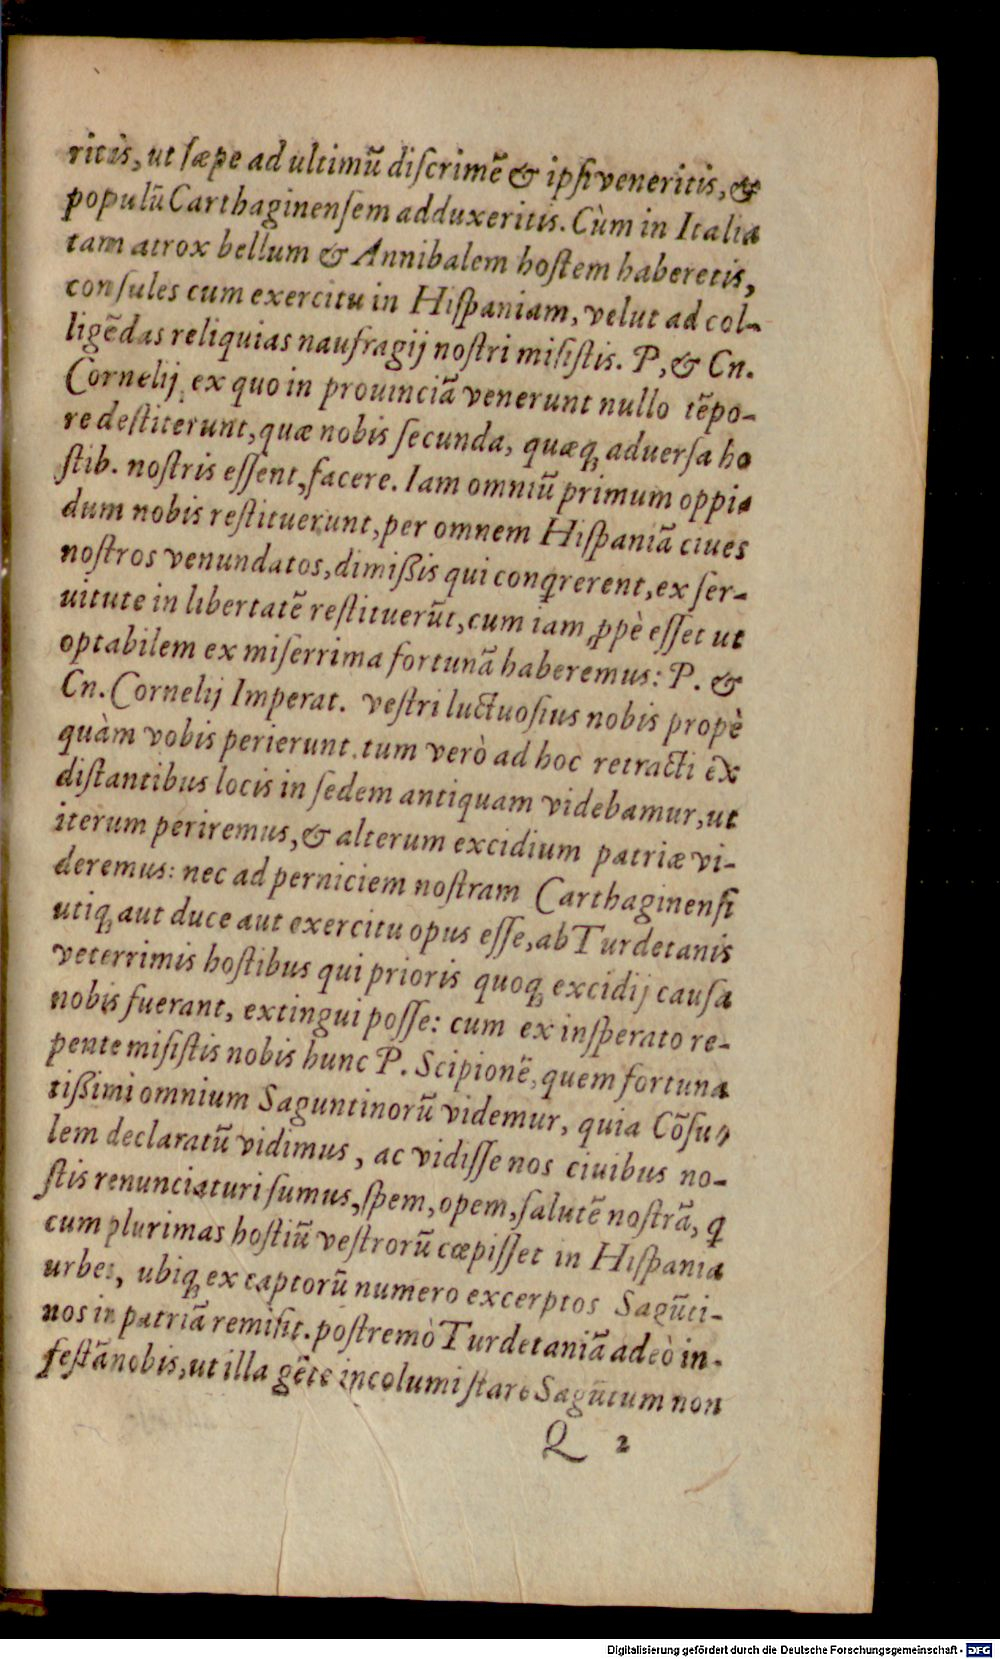 ritis, ut sæpe ad ultimū discrimē & ipsi veneritis, &
populū Carthaginensem adduxeritis. Cùm in Italia
tam atrox bellum & Annibalem hostem haberetis,
consules cum exercitu in Hispaniam, velut ad col-
ligēdas reliquias naufragij nostri misistis. P, & Cn.
Cornelij, ex quo in prouinciā venerunt nullo tēpo-
re destiterunt, quæ nobis secunda, quæq; aduersa ho
stib. nostris essent, facere. Iam omniū primum oppi-
dum nobis restituerunt, per omnem Hispaniā ciues
nostros venundatos, dimißis qui conqrerent, ex ser-
uitute in libertatē restituerūt, cum iam ꝓpè esset ut
optabilem ex miserrima fortunā haberemus: P. &
Cn. Cornelij Imperat. vestri luctuosius nobis propè
quàm vobis perierunt. tum verò ad hoc retracti ex
distantibus locis in sedem antiquam videbamur, ut
iterum periremus, & alterum excidium patriæ vi-
deremus: nec ad perniciem nostram Carthaginensi
utiq; aut duce aut exercitu opus esse, ab Turdetanis
veterrimis hostibus qui prioris quoq; excidij causa
nobis fuerant, extingui posse: cum ex insperato re-
pente misistis nobis hunc P. Scipionē, quem fortuna
tißimi omnium Saguntinorū videmur, quia Cōsu-
lem declaratū vidimus, ac vidisse nos ciuibus no-
stis renunciaturi sumus, spem, opem, salutē nostrā, q
cum plurimas hostiū vestrorū cœpisset in Hispania
urbes, ubiq; ex captorū numero excerptos Sagūti-
nos in patriā remisit. postremò Turdetaniā adeò in-
festā nobis, ut illa gēte incolumi stare Sagūtum non
Q 2
Digitalisierung gefördert durch die Deutsche Forschungsgemeinschaft - DFG